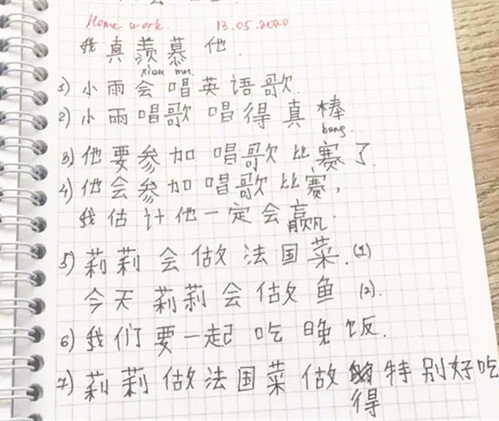 Home work. 13.05.2020
我真羡慕他.
xian mu.
1) 小雨会唱英语歌.
2) 小雨唱歌唱得真棒
bang.
3) 他要参加唱歌比赛了
4) 他会参加唱歌比赛,
我估计他一定会赢.
5) 莉莉会做法国菜. (1)
今天莉莉会做鱼 (2).
6) 我们要一起吃晚饭.
7) 莉莉做法国菜做特别好吃
得